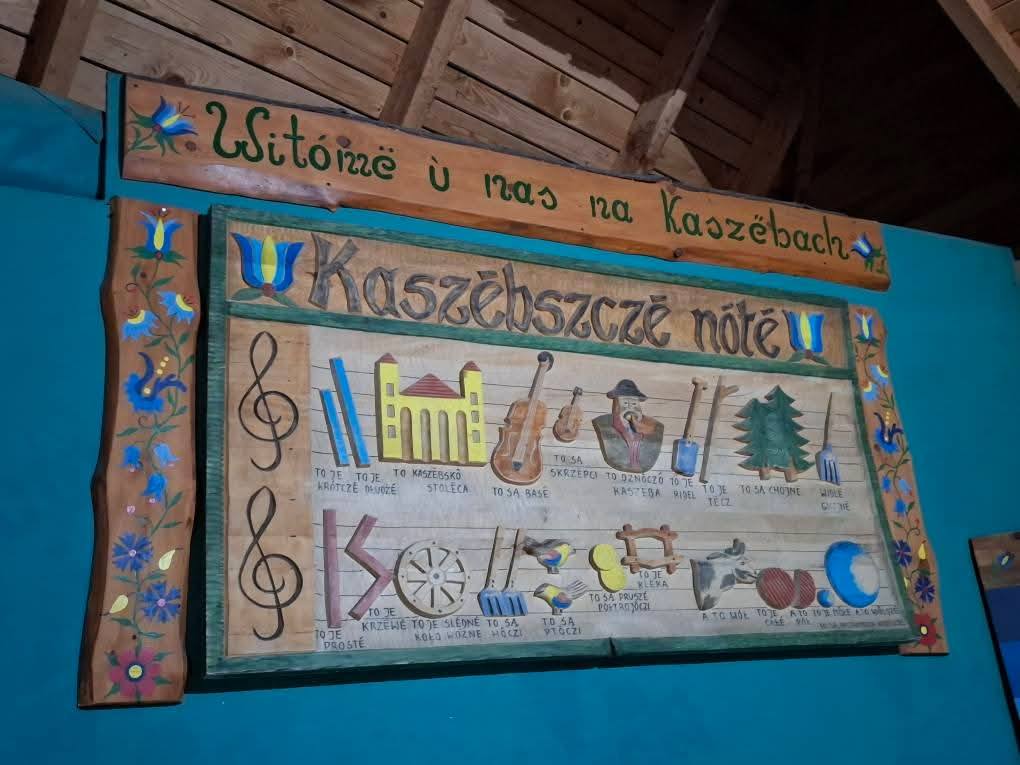 Witómë ù nas na Kaszëbach
Kaszébszczé nóté
TO JE
KRÓTCZÉ
TO JE
DŁUDŻÉ
TO KASZËBSKÔ
STOLËCA
TO SĄ BASE
TO SĄ
SKRZËPCI
TO OZNÔCZÔ
KASZEBA
TO JE
RIDEL
TO JE
TÉCZ
TO SĄ CHOJNE
WIDLE
GNOJNE
TO JE
PROSTÉ
TO JE
KRZËWÉ
TO JE SLÉDNÉ
KOŁO WOZNÉ
TO SĄ
HÔCZI
TO SĄ
PTÔCZI
TO SĄ PRUSZÉ
PÓŁTROJÔCZI
TO JE
KLËKA
A TO WÓŁ
TO JE
CAŁÉ
A TO
PÓŁ
TO JE MAŁÉ A TO